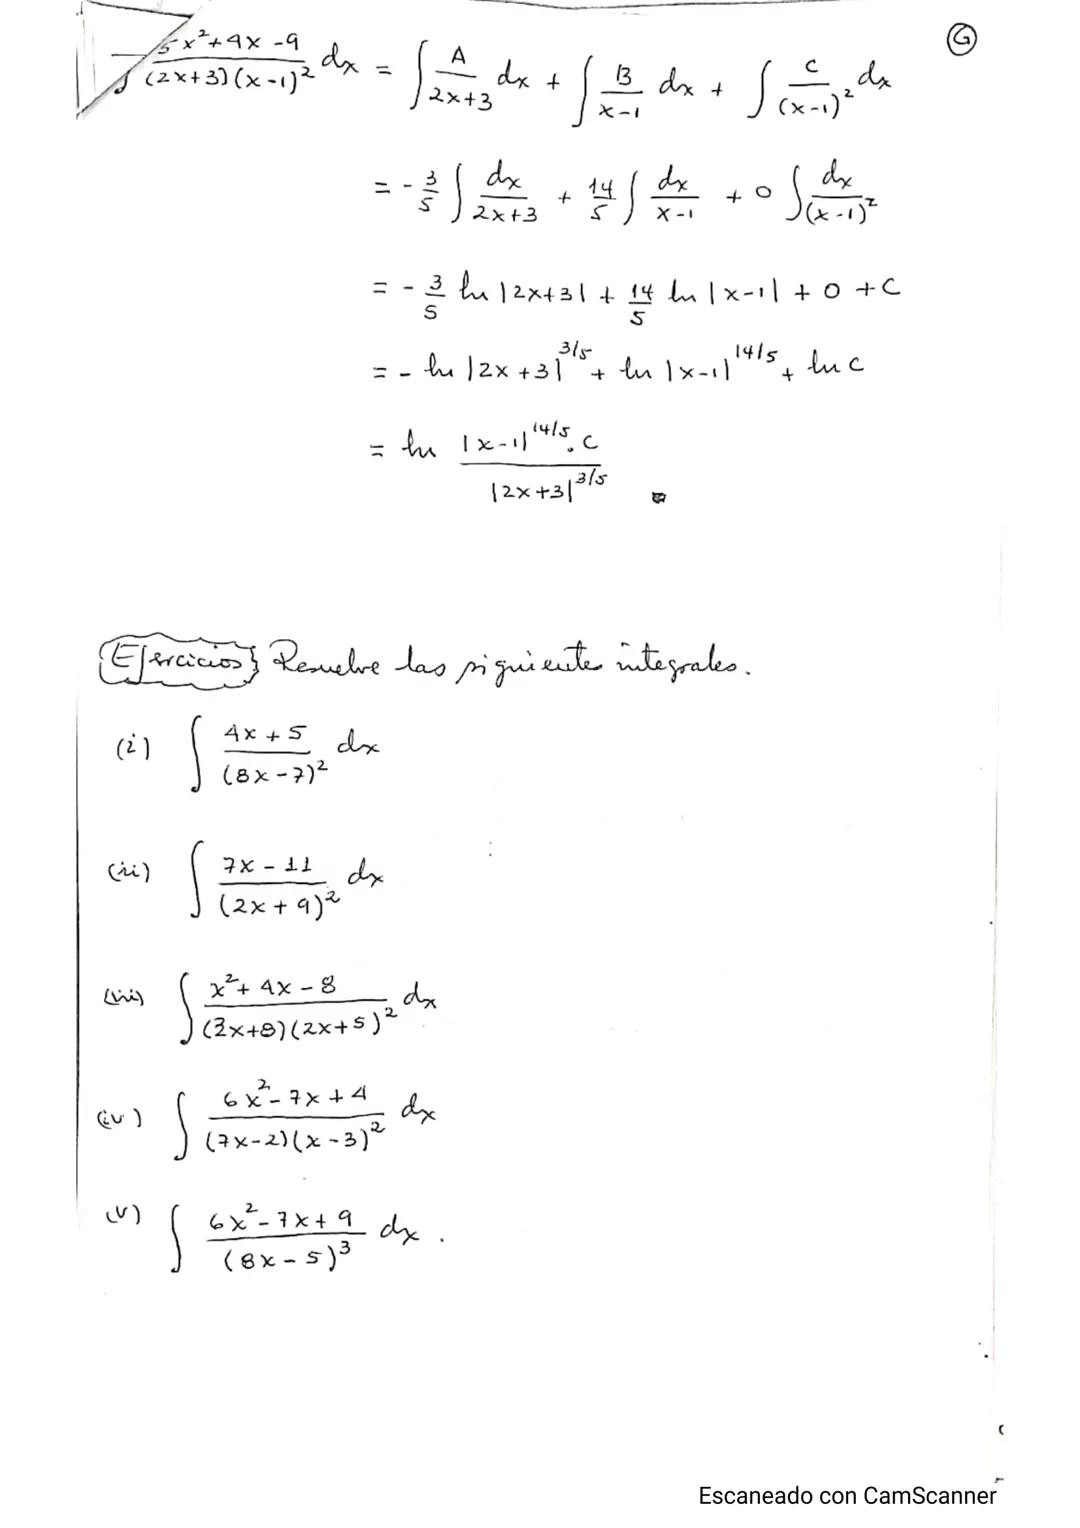 G
∫ (5x²+4x-9)/((2x+3)(x-1)²) dx = ∫ A/(2x+3) dx + ∫ B/(x-1) dx + ∫ C/(x-1)² dx
= - 3/5 ∫ dx/(2x+3) + 14/5 ∫ dx/(x-1) + 0 ∫ dx/(x-1)²
= - 3/5 ln |2x+3| + 14/5 ln |x-1| + 0 + C
= - ln |2x+3|^3/5 + ln |x-1|^14/5 + ln C
= ln (|x-1|^14/5 . C)/(|2x+3|^3/5)
Ejercicios} Resuelve las siguientes integrales.
(i) ∫ (4x+5)/(8x-7)² dx
(ii) ∫ (7x-11)/(2x+9)² dx
(iii) ∫ (x²+4x-8)/((3x+8)(2x+5)²) dx
(iv) ∫ (6x²-7x+4)/((7x-2)(x-3)²) dx
(v) ∫ (6x²-7x+9)/(8x-5)³ dx .
Escaneado con CamScanner